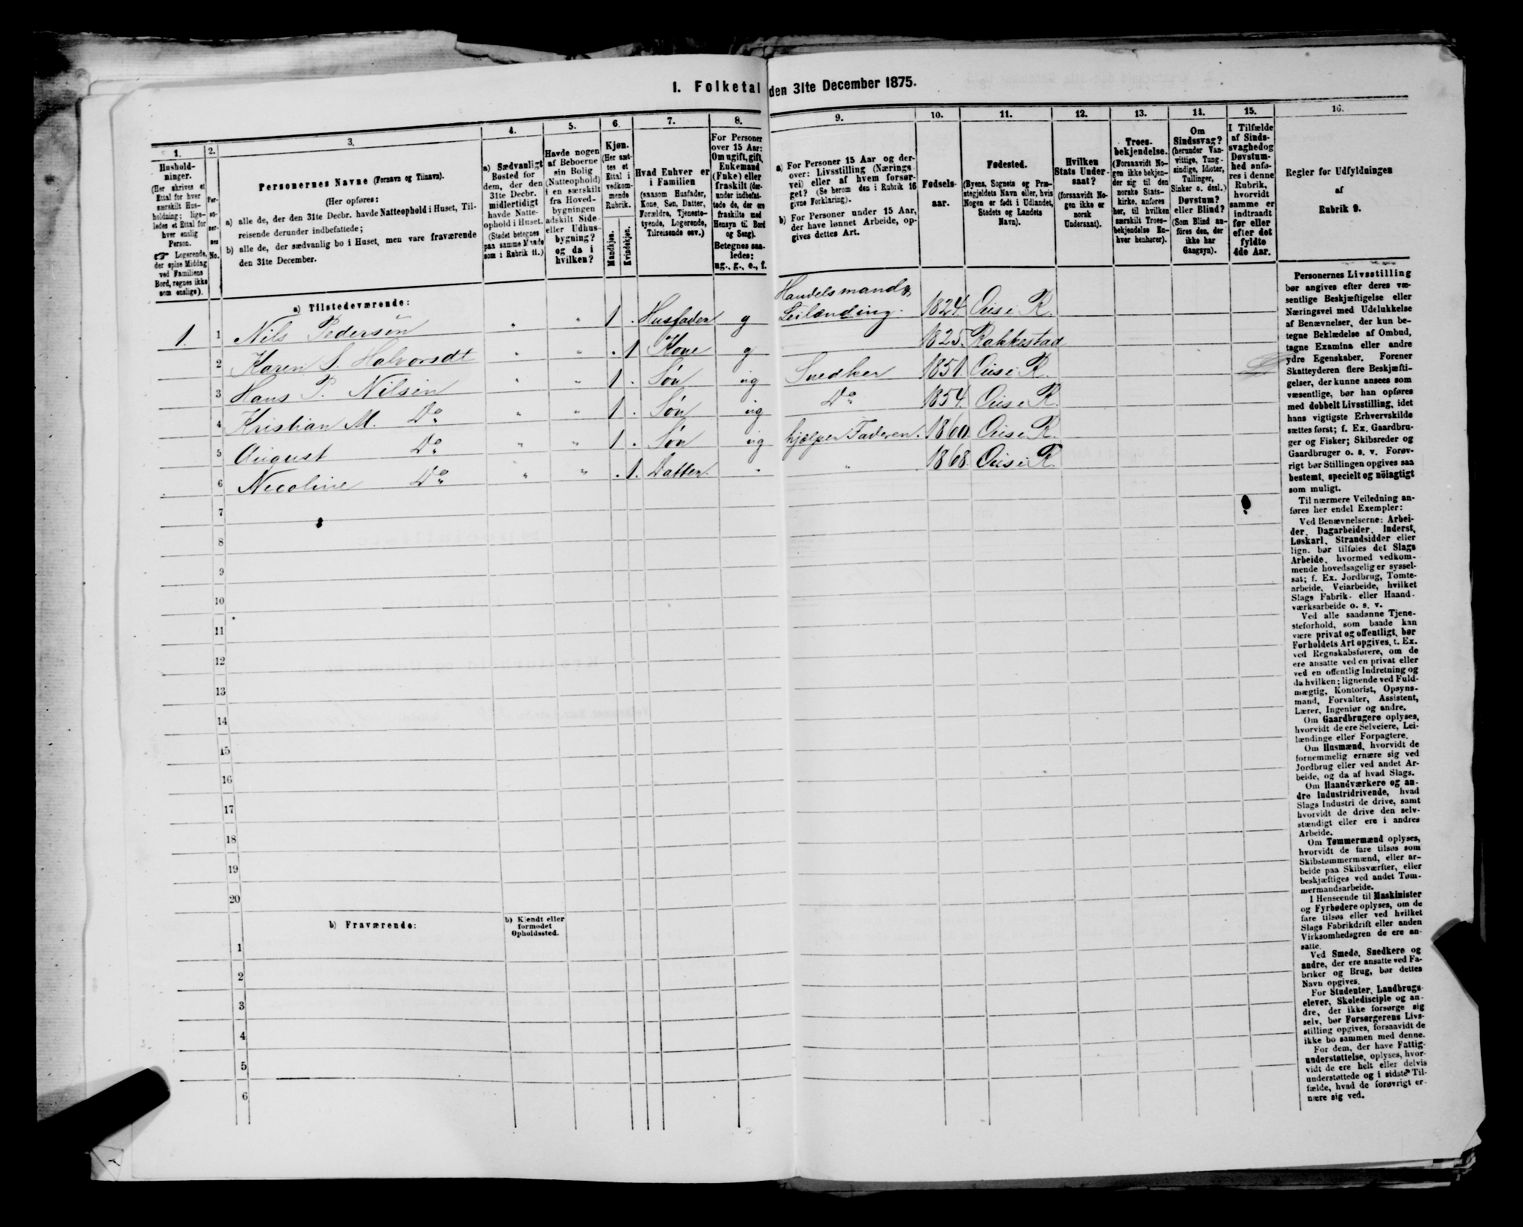 I. Folketal den 31te December 1875.
1.
Hushold-
ninger.
(Her skrives et
Ettal for hver
særskilt Hus-
holdning; lige-
ledes et Ettal for
hver enslig
Person.
☞ Logerende,
der spise Middag
ved Familiens
Bord, regnes ikke
som enslige).
2.
Per-
No.
3.
Personernes Navne (Fornavn og Tilnavn).
(Her opføres:
a) alle de, der den 31te Decbr. havde Natteophold i Huset, Til-
reisende derunder indbefattede;
b) alle de, der sædvanlig bo i Huset, men vare fraværende
den 31te December.
4.
a) Sædvanligt
Bosted for
dem, der den
31te Decbr.
midlertidigt
havde Natte-
ophold i Huset.
(Stedet betegnes
paa samme Maade
som i Rubrik 11.)
5.
Havde nogen
af Beboerne
sin Bolig
(Natteophold)
i en særskilt
fra Hoved-
bygningen
adskilt Side-
eller Udhus-
bygning?
og da i
hvilken?
6.
Kjøn.
(Her sæt-
tes et
Ettal i
vedkom-
mende
Rubrik.
Mandkjøn.
Kvindekjøn.
7.
Hvad Enhver er
i Familien
(saasom Husfader,
Kone, Søn, Datter,
Forældre, Tjeneste-
tyende, Logerende,
Tilreisende osv.)
8.
For Personer
over 15 Aar:
Om ugift, gift,
Enkemand
(Enke) eller
fraskilt (der-
under indbefat-
tede de, der ere
fraskilte med
Hensyn til Bord
og Seng).
Betegnes saa-
ledes:
ug., g., e., f.
9.
a) For Personer 15 Aar og der-
over: Livsstilling (Nærings-
vei) eller af hvem forsør-
get? (Se herom den i Rubrik 16
givne Forklaring).
b) For Personer under 15 Aar,
der have lønnet Arbeide, op-
gives dettes Art.
10.
Fødsels-
aar.
11.
Fødested.
(Byens, Sognets og Præ-
stegjeldets Navn eller, hvis
Nogen er født i Udlandet,
Stedets og Landets
Navn).
12.
Hvilken
Stats Under-
saat?
(forsaavidt No-
gen ikke er
norsk
Undersaat).
13.
Troes-
bekjendelse.
(Forsaavidt No-
gen ikke bekjen-
der sig til den
norske Stats-
kirke, anføres
her, til hvilken
særskilt Troes-
bekjendelse En-
hver henhører).
14.
Om
Sindssvag?
(herunder Van-
vittige, Tung-
sindige, Idioter,
Tullinger,
Sinker o. desl.)
Døvstum?
eller Blind?
(Som Blind an-
føres den, der
ikke har
Gangsyn).
15.
I Tilfælde
af Sinds-
svaghed og
Døvstum-
hed anfø-
res i denne
Rubrik,
hvorvidt
samme er
indtraadt
før eller
efter det
fyldte
4de Aar.
16.
Regler for Udfyldningen
af
Rubrik 9.
a) Tilstedeværende:
1. 1 Nils Pedersen " " 1 . Husfader g Handelsmand & Leilænding. 1824. Onsø i R.
2 Karen S. Halvorsdt " " . 1 Kone g 1825. Rakkestad
3 Hans P. Nilsen " " 1 . Søn ug Snedker 1851. Onsø i R.
4 Kristian M. Do " " 1 . Søn ug Do 1854. Onsø i R.
5 August Do " " 1 . Søn ug hjælper Faderen. 1860. Onsø i R.
6 Necoline Do " " . 1. Datter " " 1868. Onsø i R.
7
8
9
10
11
12
13
14
15
16
17
18
19
20
b) Fraværende:
b) Kjendt eller
formodet
Opholdssted.
1
2
3
4
5
6
Personernes Livsstilling
bør angives efter deres væ-
sentlige Beskjæftigelse eller
Næringsvei med Udelukkelse
af Benævnelser, der kun be-
tegne Beklædelse af Ombud,
tagne Examina eller andre
ydre Egenskaber. Forener
Skatteyderen flere Beskjæfti-
gelser, der kunne ansees som
væsentlige, bør han opføres
med dobbelt Livsstilling, idet
hans vigtigste Erhvervskilde
sættes først; f. Ex. Gaardbru-
ger og Fisker; Skibsreder og
Gaardbruger o. s. v. Forøv-
rigt bør Stillingen opgives saa
bestemt, specielt og nöiagtigt
som muligt.
Til nærmere Veiledning an-
føres her endel Exempler:
Ved Benævnelserne: Arbei-
der, Dagarbeider, Inderst,
Løskarl, Strandsidder eller
lign. bør tilføies det Slags
Arbeide, hvormed vedkom-
mende hovedsagelig er syssel-
sat; f. Ex. Jordbrug, Tomte-
arbeide, Veiarbeide, hvilket
Slags Fabrik- eller Haand-
værksarbeide o. s. v.
Ved alle saadanne Tjene-
steforhold, som baade kan
være privat og offentligt, bør
Forholdets Art opgives, t. Ex.
ved Regnskabsførere, om de
ere ansatte ved en privat eller
ved en offentlig Indretning og
da hvilken; lignende ved Fuld-
mægtig, Kontorist, Opsyns-
mand, Forvalter, Assistent,
Lærer, Ingeniør og andre.
Om Gaardbrugere oplyses,
hvorvidt de ere Selveiere, Lei-
lændinge eller Forpagtere.
Om Husmænd, hvorvidt de
fornemmelig ernære sig ved
Jordbrug eller ved andet Ar-
beide, og da af hvad Slags.
Om Haandværkere og an-
dre Industridrivende, hvad
Slags Industri de drive, samt
hvorvidt de drive den selv-
stændigt eller ere i andres
Arbeide.
Om Tømmermænd oplyses,
hvorvidt de fare tilsøs som
Skibstømmermænd, eller ar-
beide paa Skibsværfter, eller
beskjæftiges ved andet Tøm-
mermandsarbeide.
I Henseende til Maskinister
og Fyrbødere oplyses, om de
fare tilsøs eller ved hvilket
Slags Fabrikdrift eller anden
Virksomhedsgren de ere an-
satte.
Ved Smede, Snedkere og
andre, der ere ansatte ved Fa-
briker og Brug, bør dettes
Navn opgives.
For Studenter, Landbrugs-
elever, Skoledisciple og an-
dre, der ikke forsørge sig
selv, bør Forsørgerens Livs-
stilling opgives, forsaavidt de
ikke bo sammen med denne.
For dem, der have Fattig-
understøttelse, oplyses, hvor-
vidt de ere helt eller delvis
understøttede og i sidste Til-
fælde, hvad de forøvrigt er-
nære sig ved.